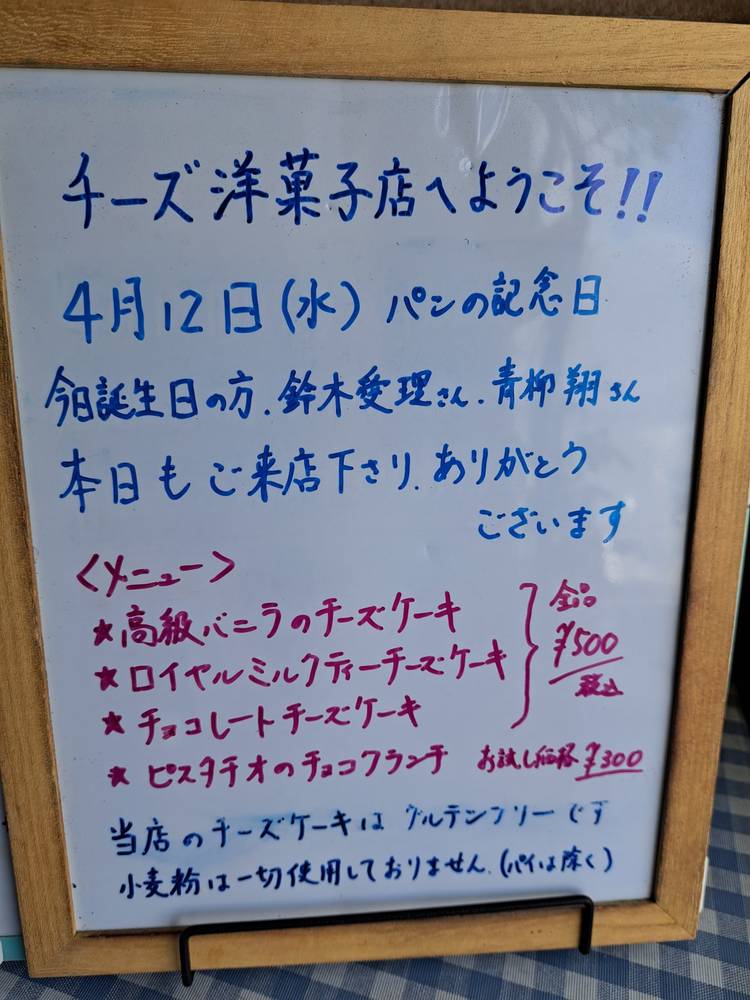 チーズ洋菓子店へようこそ!!
4月12日(水) パンの記念日
今日誕生日の方、鈴木愛理さん、青柳翔さん
本日もご来店下さり、ありがとう
ございます
<メニュー>
★高級バニラのチーズケーキ
★ロイヤルミルクティーチーズケーキ
★チョコレートチーズケーキ
全品
¥500
税込
★ピスタチオのチョコクランチ お試し価格 ¥300
当店のチーズケーキはグルテンフリーです
小麦粉は一切使用しておりません。(パイは除く)